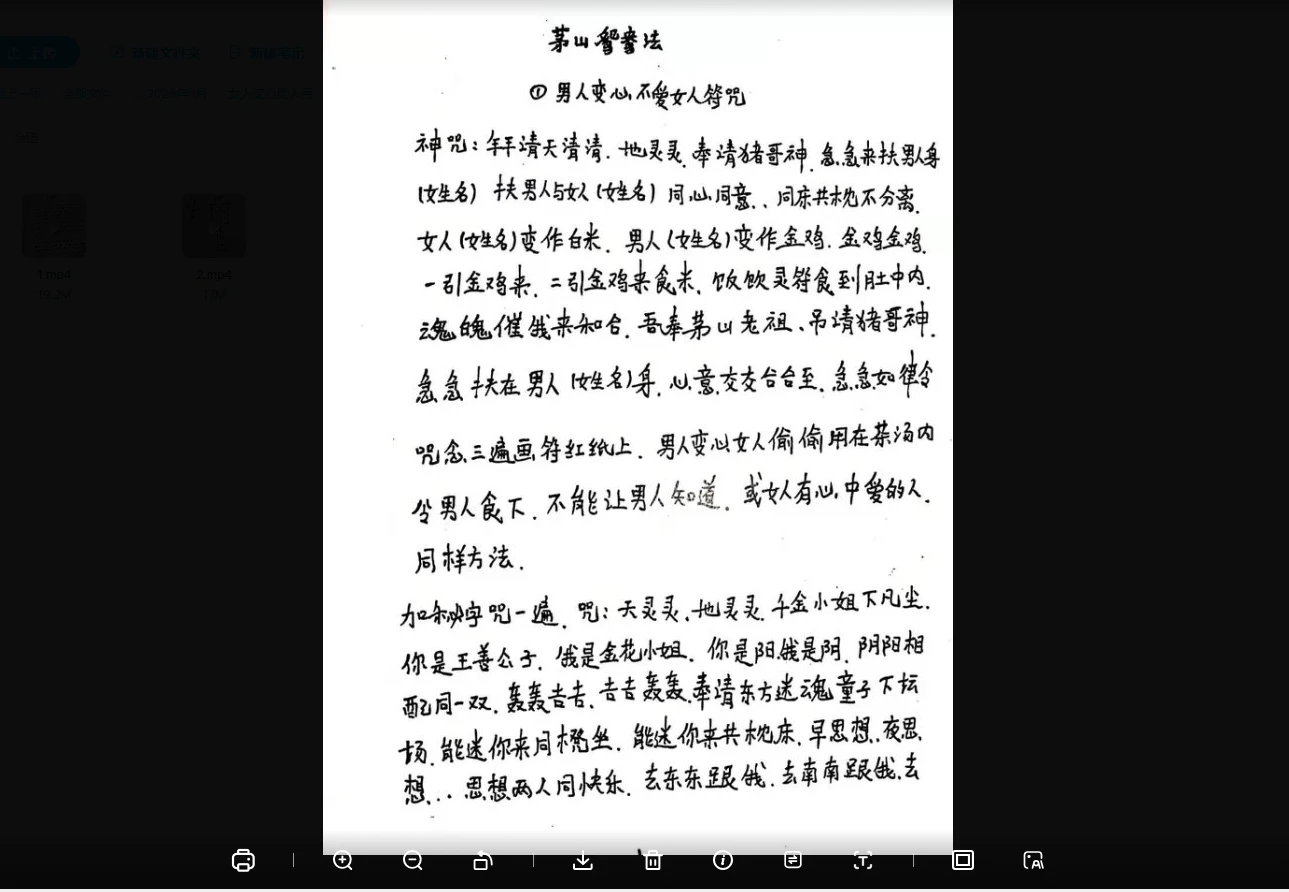 茅山鸳鸯法
① 男人变心不爱女人符咒
神咒：年年请天清清．地灵灵．奉请猪哥神．急急来扶男人身
（女姓名） 扶男人与女人（女姓名）同心同意．．同床共枕不分离．
女人（女姓名）变作白米．男人（女姓名）变作金鸡．金鸡金鸡．
一引金鸡来．二引金鸡来食米．饭飲灵符食到肚中内．
魂魄催俄来和合．吾奉茅山老祖、吊请猪哥神．
急急扶在男人（女姓名）身．心意交交合合至．急急如律令
咒念三遍画符红纸上．男人变心女人偷偷用在茶汤内
令男人食下．不能让男人知道．或女人有心中爱的人．
同样方法．
加秘字咒一遍．咒：天灵灵．地灵灵．千金小姐下凡尘．
你是王善公子．俄是金花小姐．你是阳俄是阴．阴阳相
配同一双．轰轰吉吉．吉吉轰轰．奉请东方迷魂童子下坛
场．能迷你来同櫈坐．能迷你来共枕床．早思想．夜思
想．．．思想两人同快乐．去东东跟俄．去南南跟俄．去
1.mp4
2.mp4